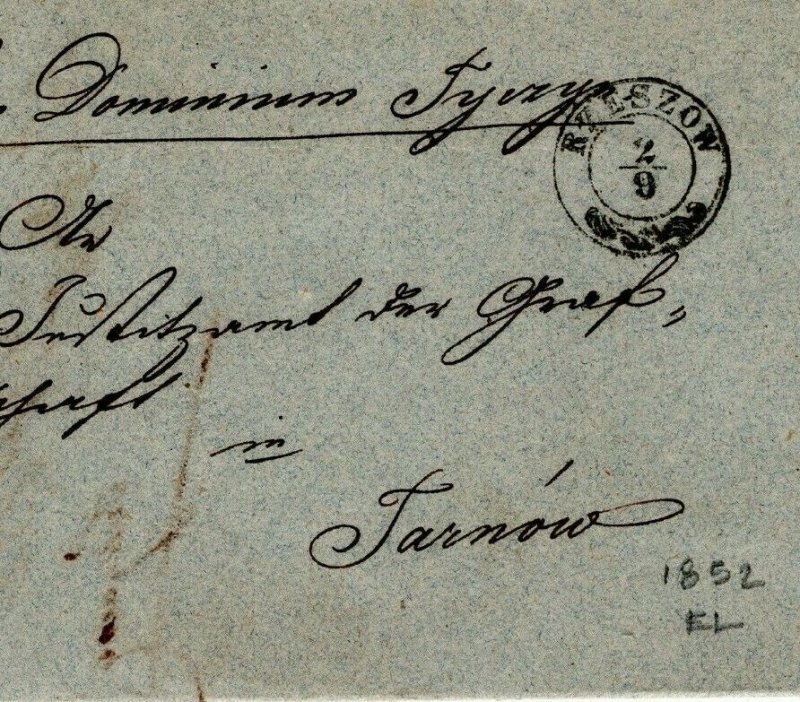 Dominium Tyczyn
RZESZOW
2
9
An
Justitzamt der Graf„
schaft
in
Tarnów
1852
EL